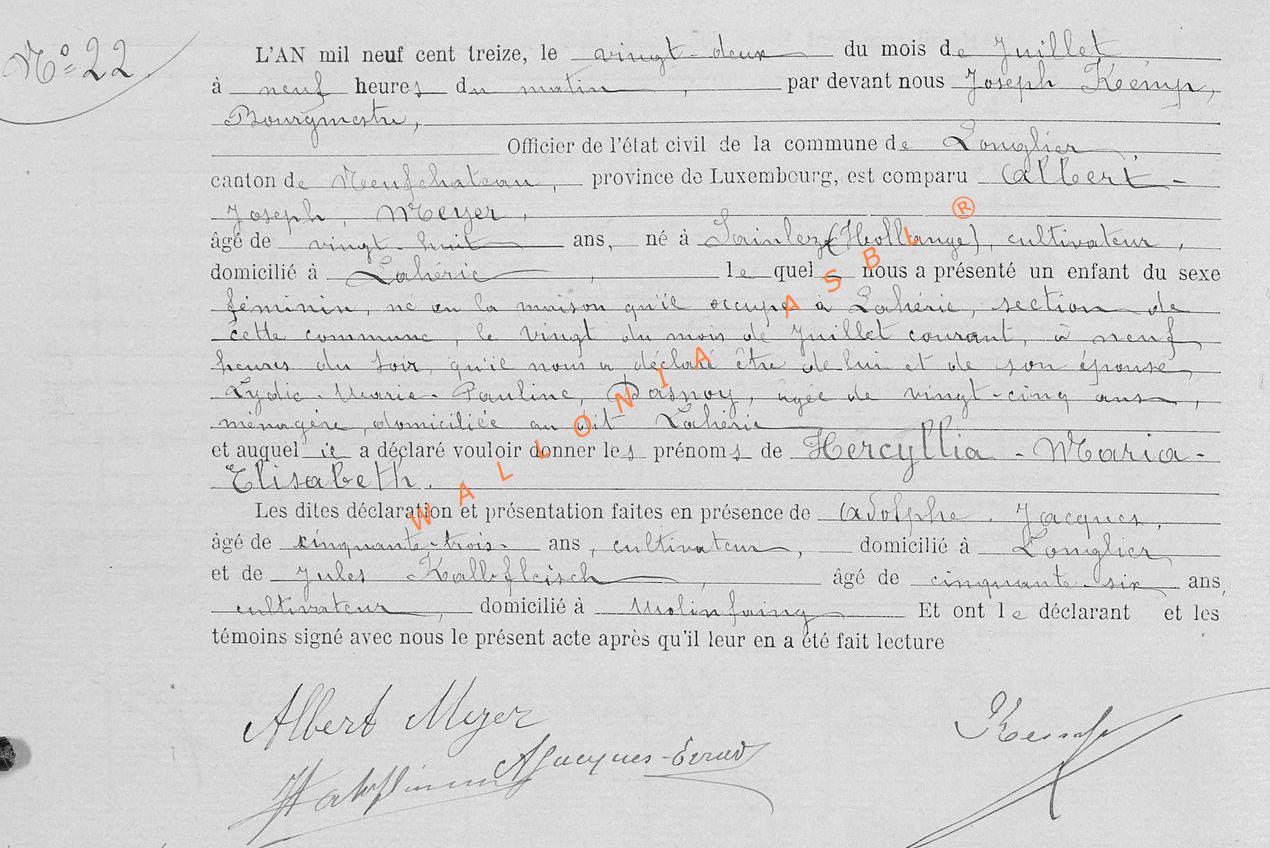 N° 22
L'AN mil neuf cent treize, le vingt-deux du mois de Juillet
à neuf heures du matin, par devant nous Joseph Kemp,
Bourgmestre,
Officier de l'état civil de la commune de Longlier,
canton de Neufchateau, province de Luxembourg, est comparu Albert-
Joseph, Meyer,
âgé de vingt-huit ans, né à Sainlez (Hollange), cultivateur,
domicilié à Lahérie, le quel nous a présenté un enfant du sexe
féminin, né en la maison qu'il occupe à Lahérie, section de
cette commune, le vingt du mois de Juillet courant, à neuf
heures du soir, qu'il nous a déclaré être de lui et de son épouse,
Lydie-Marie-Pauline, Dasnoy, agée de vingt-cinq ans,
ménagère, domiciliée au dit Lahérie
et auquel il a déclaré vouloir donner les prénoms de Hercyllia-Maria-
Elisabeth.
Les dites déclaration et présentation faites en présence de Adolphe Jacques,
âgé de cinquante-trois ans, cultivateur, domicilié à Longlier
et de Jules Kalbfleisch, âgé de cinquante-six ans,
cultivateur, domicilié à Molinfaing Et ont le déclarant et les
témoins signé avec nous le présent acte après qu'il leur en a été fait lecture
Albert Meyer
Kemp
AJacques
WALLONIA ASBL ®